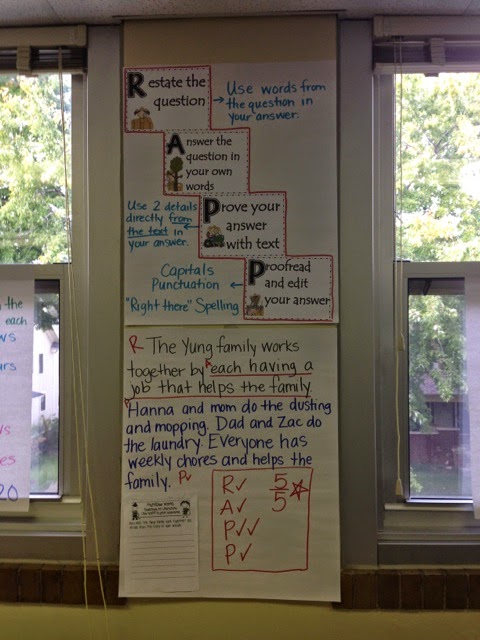 Restate the
question
Use words from
the question in
your answer.
Answer the
question in
your own
words
Use 2 details
directly from
the text in
your answer.
Prove your
answer
with text
Capitals
Punctuation
"Right there" Spelling
Proofread
and edit
your answer
R The Yung family works
together by each having a
job that helps the family.
Hanna and mom do the dusting
and mopping. Dad and Zac do
the laundry. Everyone has
weekly chores and helps the
family. P✓
R✓ 5/5
A✓
P✓✓
P✓
the
each
20